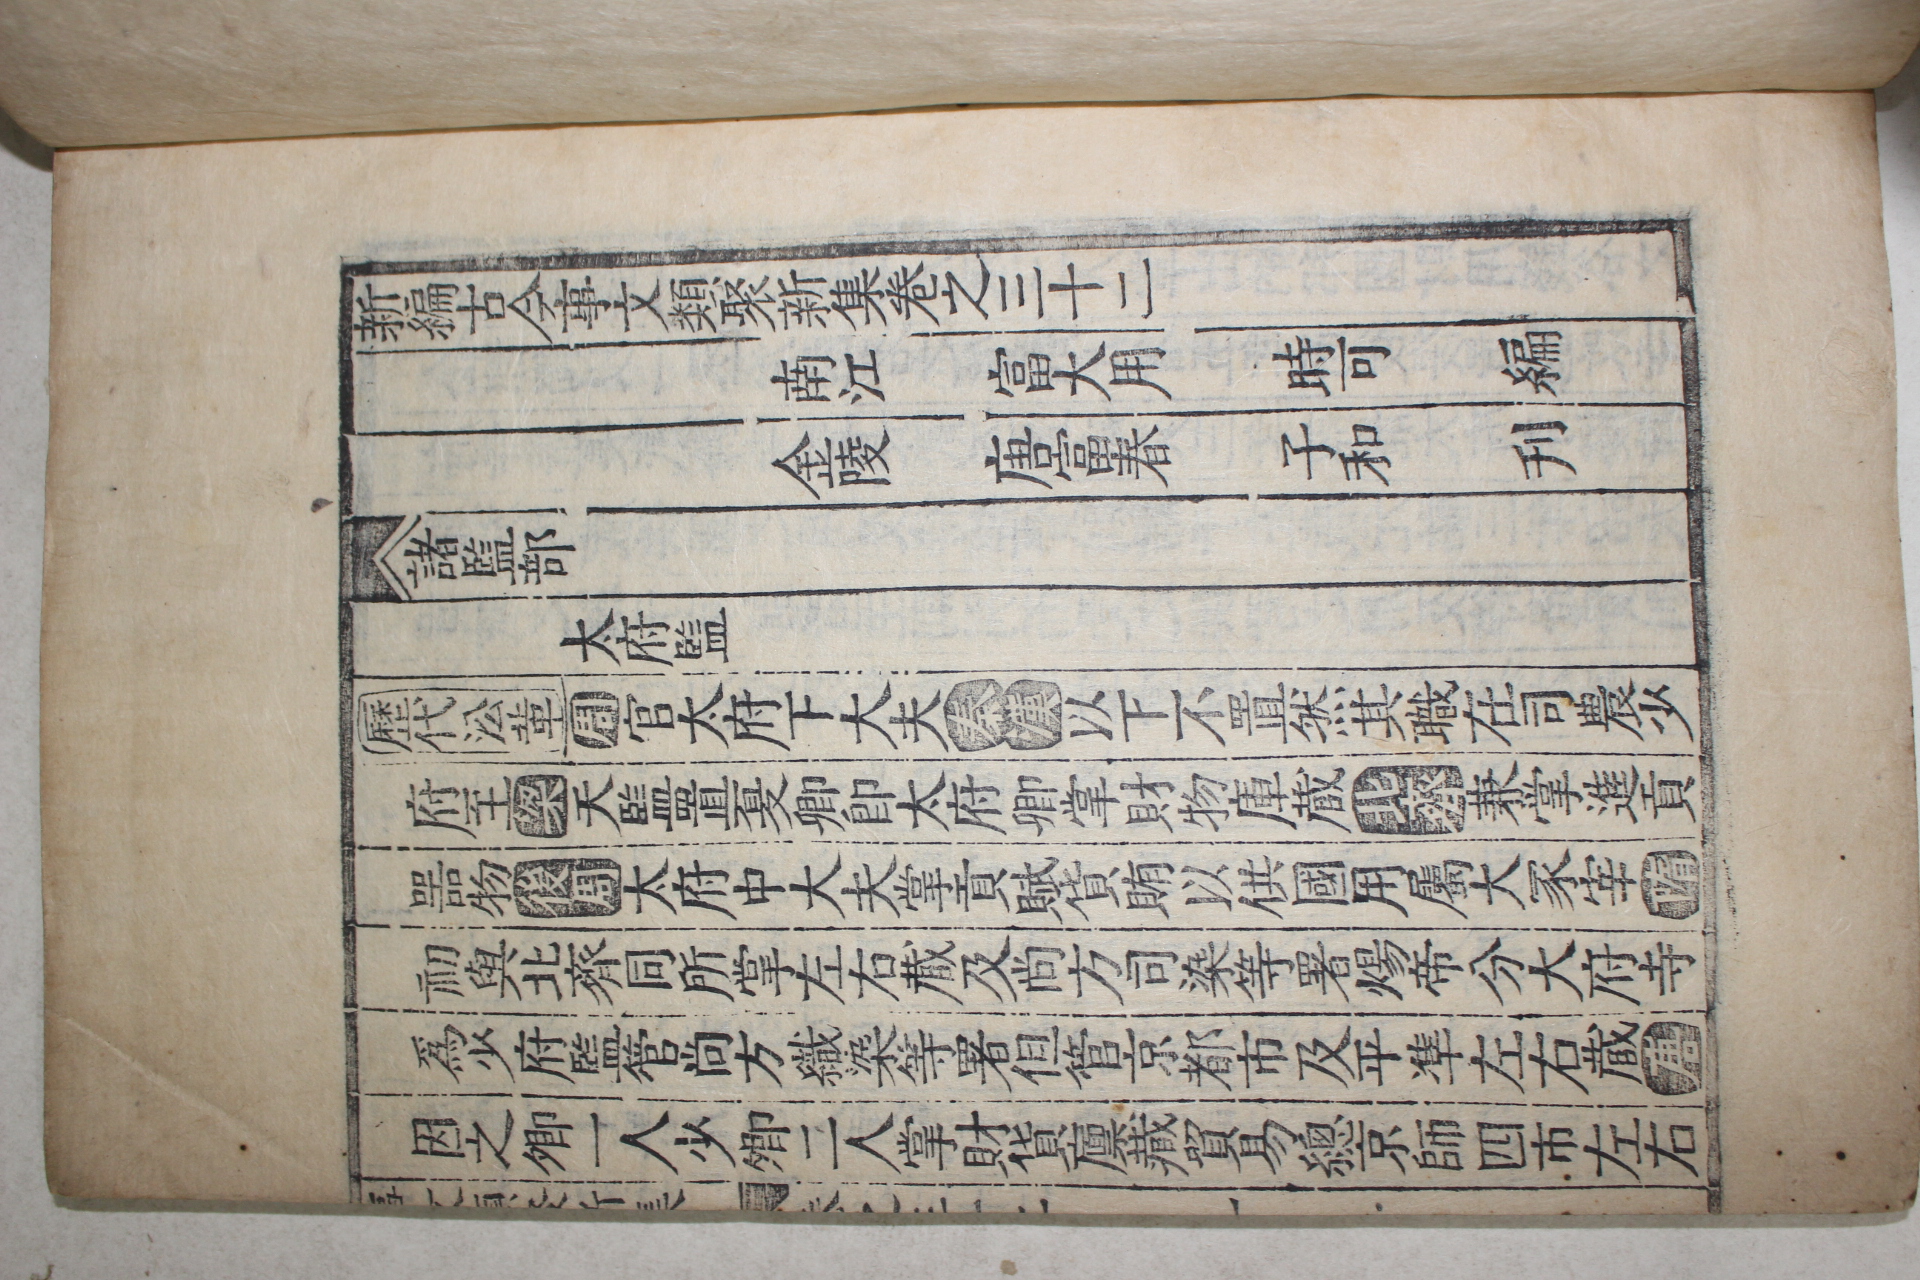 新編古今事文類聚新集卷之三十二
南江 富大用 時可 編
金陵 唐富春 子和 刋
諸監部
太府監
歷代沿革周官太府下大夫秦漢以下不置然其職在司農少
府至梁天監置夏卿卽太府卿掌財物庫蔵北齊兼掌進貢
器物後周太府中大夫掌貢賦貨賄以供國用屬大冢宰隋
初與北齊同所掌左右蔵及尚方司染等署煬帝分大府寺
爲少府監管尚方織染等署但管京都市及平準左右蔵唐
因之卿一人少卿二人掌財貨廪藏貿易總京師四市左右